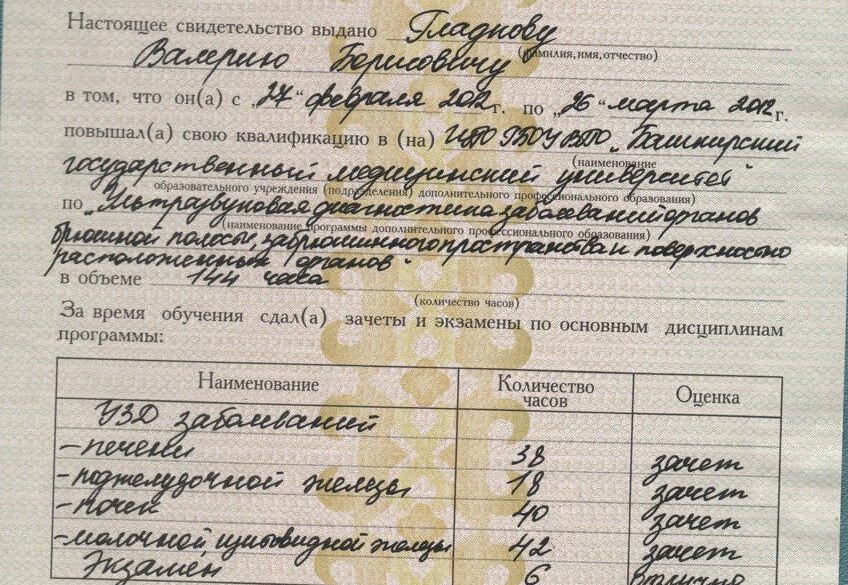 Настоящее свидетельство выдано Гладкову
Валерию Борисовичу (фамилия, имя, отчество)
в том, что он(а) с „27“ февраля 2012 г. по „26“ марта 2012 г.
повышал(а) свою квалификацию в (на) ИПО ГБОУ ВПО „Башкирский
(наименование
государственный медицинский университет“
образовательного учреждения (подразделения) дополнительного профессионального образования)
по „Ультразвуковая диагностика заболеваний органов
(наименование программы дополнительного профессионального образования)
брюшной полости, забрюшинного пространства и поверхностно
расположенных органов“
в объеме 144 часа
(количество часов)
За время обучения сдал(а) зачеты и экзамены по основным дисциплинам
программы:
Наименование Количество часов Оценка
УЗД заболеваний
- печени 38 зачет
- поджелудочной железы 18 зачет
- почек 40 зачет
- молочной щитовидной железы 42 зачет
Экзамен 6